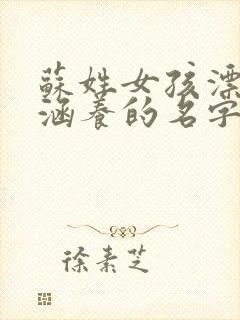 蘇姓女孩漂
涵養的名字
徐素芝